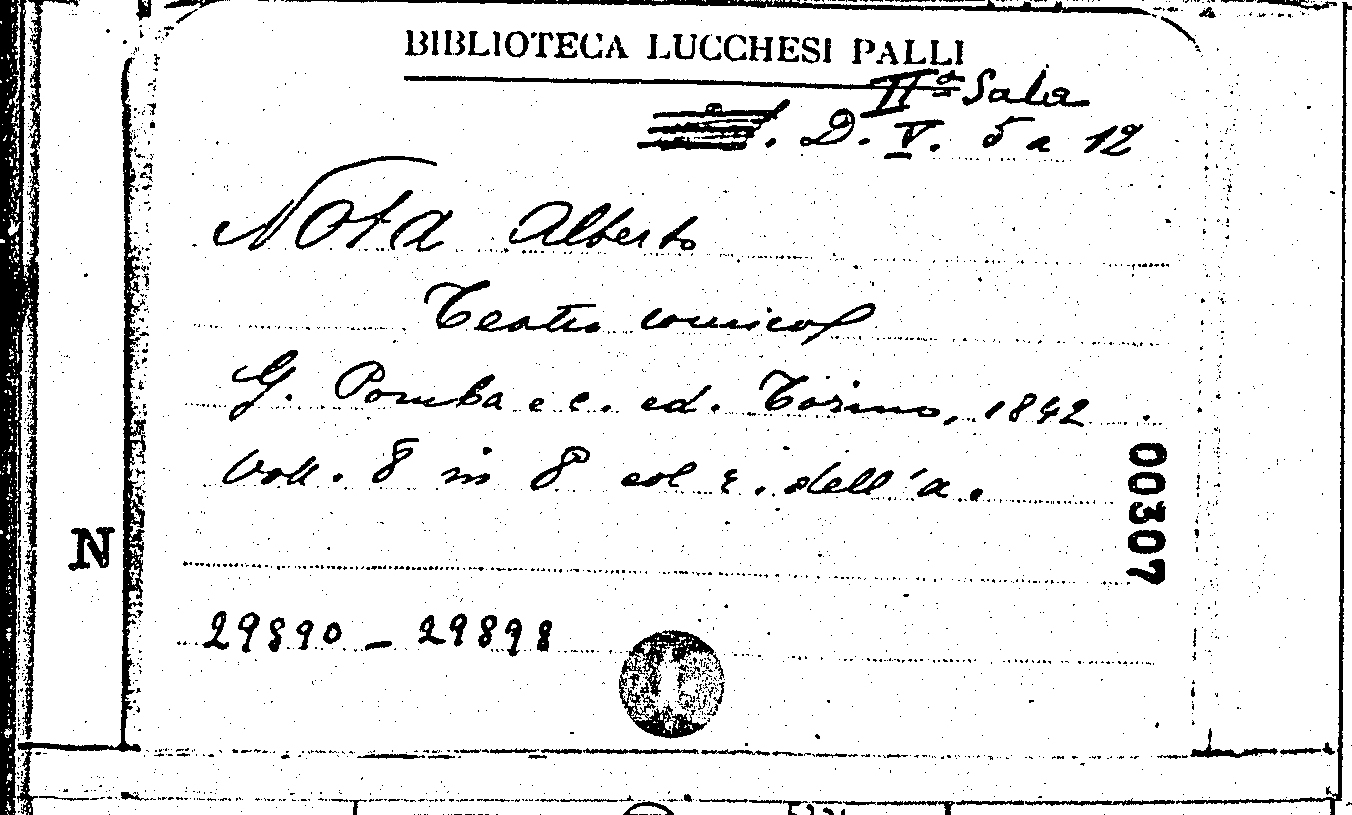 BIBLIOTECA LUCCHESI PALLI
IIª Sala
D. V. 5 a 12
Nota Alberto
Teatro comico
G. Pomba e c. ed. Torino, 1842
Voll. 8 in 8 col r. dell'a.
00307
N
29890 — 29898